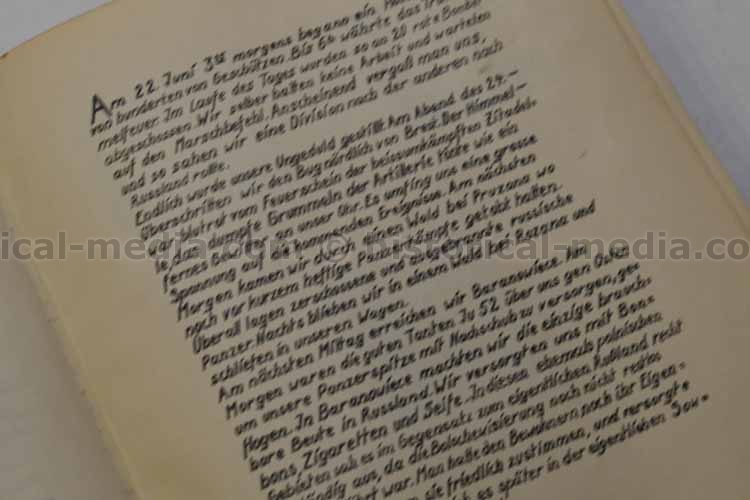 Am 22. Juni 3 15 morgens began ein
von hunderten von Geschützen. Bis 6 h währte das
melfeuer. Im Laufe des Tages wurden so an 20 rote Bomber
abgeschossen. Wir selber hatten keine Arbeit und warteten
auf den Marschbefehl. Anscheinend vergaß man uns,
und so sahen wir eine Division nach der anderen nach
Russland rollte.
Endlich wurde unsere Ungeduld gestillt. Am Abend des 24.-
überschritten wir den Bug nördlich von Brest. Der Himmel -
war blutrot vom Feuerschein der beissumkämpften Zitadel-
le, das dumpfe Grummeln der Artillerie tönte wie ein
fernes Gewitter an unser Ohr. Es umfing uns eine grosse
Spannung auf die kommenden Ereignisse. Am nächsten
Morgen kamen wir durch einen Wald bei Pruzana wo
noch vor kurzem heftige Panzerkämpfe getobt hatten.
Überall lagen zerschossene und ausgebrannte russische
Panzer. Nachts blieben wir in einem Wald bei Rozana und
schliefen in unseren Wagen.
Am nächsten Mittag erreichen wir Baranowiece. Am
Morgen waren die guten Tanten Ju 52 über uns gen Osten
um unsere Panzerspitze mit Nachschub zu versorgen, ge-
flogen. In Baranowiece machten wir die einzige brauch-
bare Beute in Russland. Wir versorgten uns mit Bon-
bons, Zigaretten und Seife. In diesen ehemals polnischen
Gebieten sah es im Gegensatz zum eigentlichen Rußland recht
ständig aus, da die Bolschewisierung noch nicht restlos
war. Man hatte den Bewohnern noch ihr Eigen-
sie friedlich zustimmen, und versorgte
es später in der eigentlichen Sow-
historical-media.com © historical-media.com